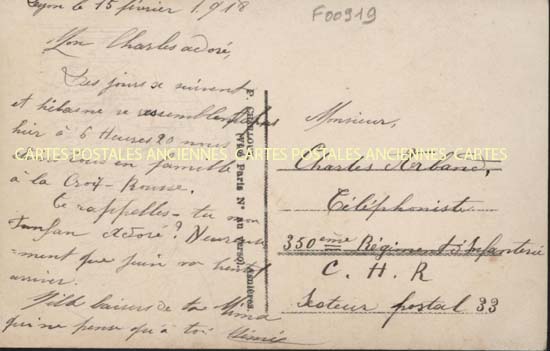 Lyon le 15 février 1918
F00919
Mon Charles adoré,
Les jours se suivent
et hélas ne se ressemblent pas
hier à 6 heures 20 nous
en famille
à la Croix-Rousse.
te rappelles-tu mon
adoré?
-ment que juin va bientôt
arriver.
baisers de ta Mimie
qui ne pense qu'à toi Mimie
Monsieur,
Charles Arband,
Téléphoniste
350ème Régiment d'Infanterie
C. H. R
Secteur postal 33
CARTES POSTALES ANCIENNES CARTES POSTALES ANCIENNES CARTES POSTALES ANCIENNES
Paris
Asnières